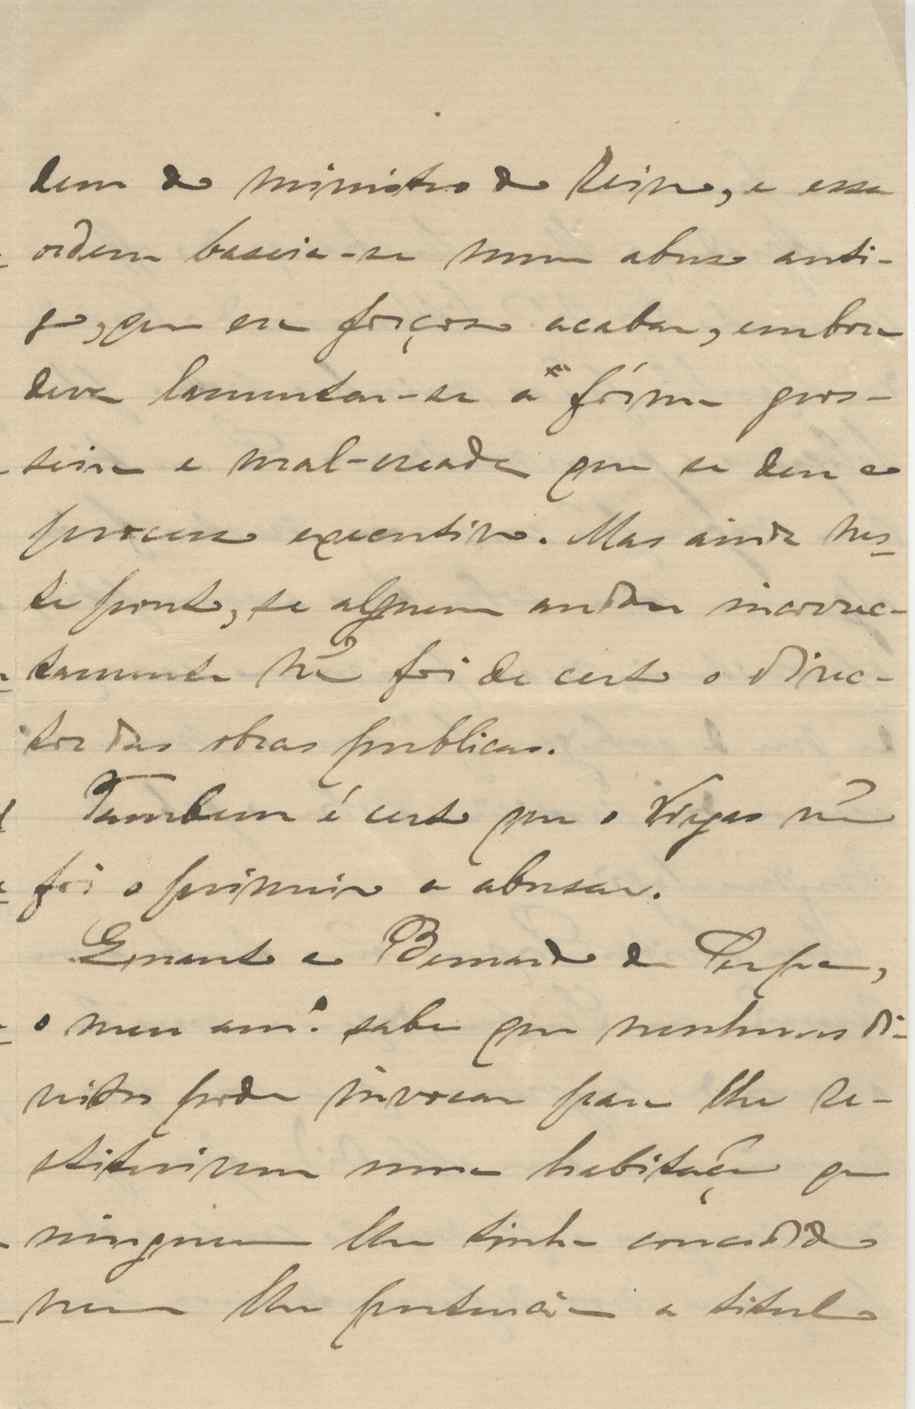 dem do ministro do Reino, e essa
ordem baseia-se num abuso anti-
go, que era forçoso acabar, embora
deva lamentar-se a fórma gros-
seira e mal-creada que se deu ao
processo executivo. Mas ainda nes-
te ponto, se alguem andou incorrec-
tamente nã foi de certo o direc-
tor das obras publicas.
Tambem é certo que o Viegas nã
foi o primeiro a abusar.
Emquanto a Bernardo de Serpa,
o meu amº. sabe que nenhuns di-
reitos pode invocar para lhe re-
stituirem uma habitação que
ninguem lhe tinha concedido
nem lhe pertencia a titulo